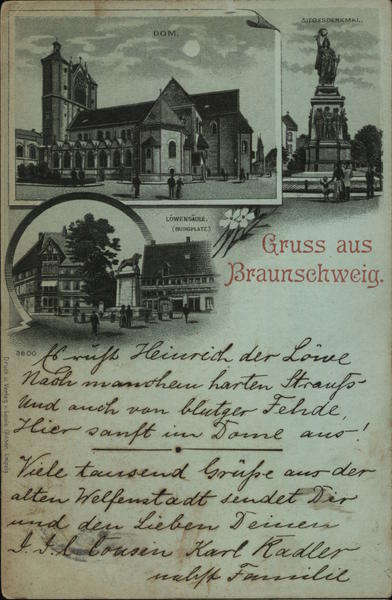 DOM.
SIEGESDENKMAL.
LÖWENSÄULE.
(BURGPLATZ.)
Gruss aus
Braunschweig.
3600
Druck u. Verlag v. Louis Glaser, Leipzig
Es ruht Heinrich der Löwe
Nach manchem harten Strauß
Und auch von blutger Fehde,
Hier sanft im Dome aus!
Viele tausend Grüße aus der
alten Welfenstadt sendet Dir
und den Lieben Deinen
Cousin Karl Kadler
nebst Familie